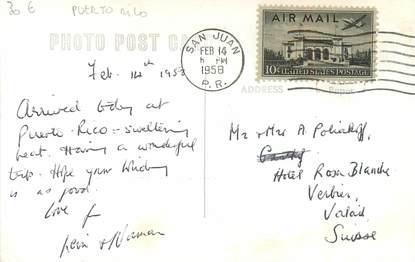 30 E PUERTO RICO
PHOTO POST CA
SAN JUAN
FEB 14
PM
1958
P.R.
AIR MAIL
10¢ UNITED STATES POSTAGE
ADDRESS
Feb. 14th 1958
Arrived today at
Puerto-Rico - sweltering
heat. Having a wonderful
trip. Hope your
is as good.
Love
& Norman
Mr & Mrs A.
Hotel Rosa Blanche
Verbier,
Valais
Suisse